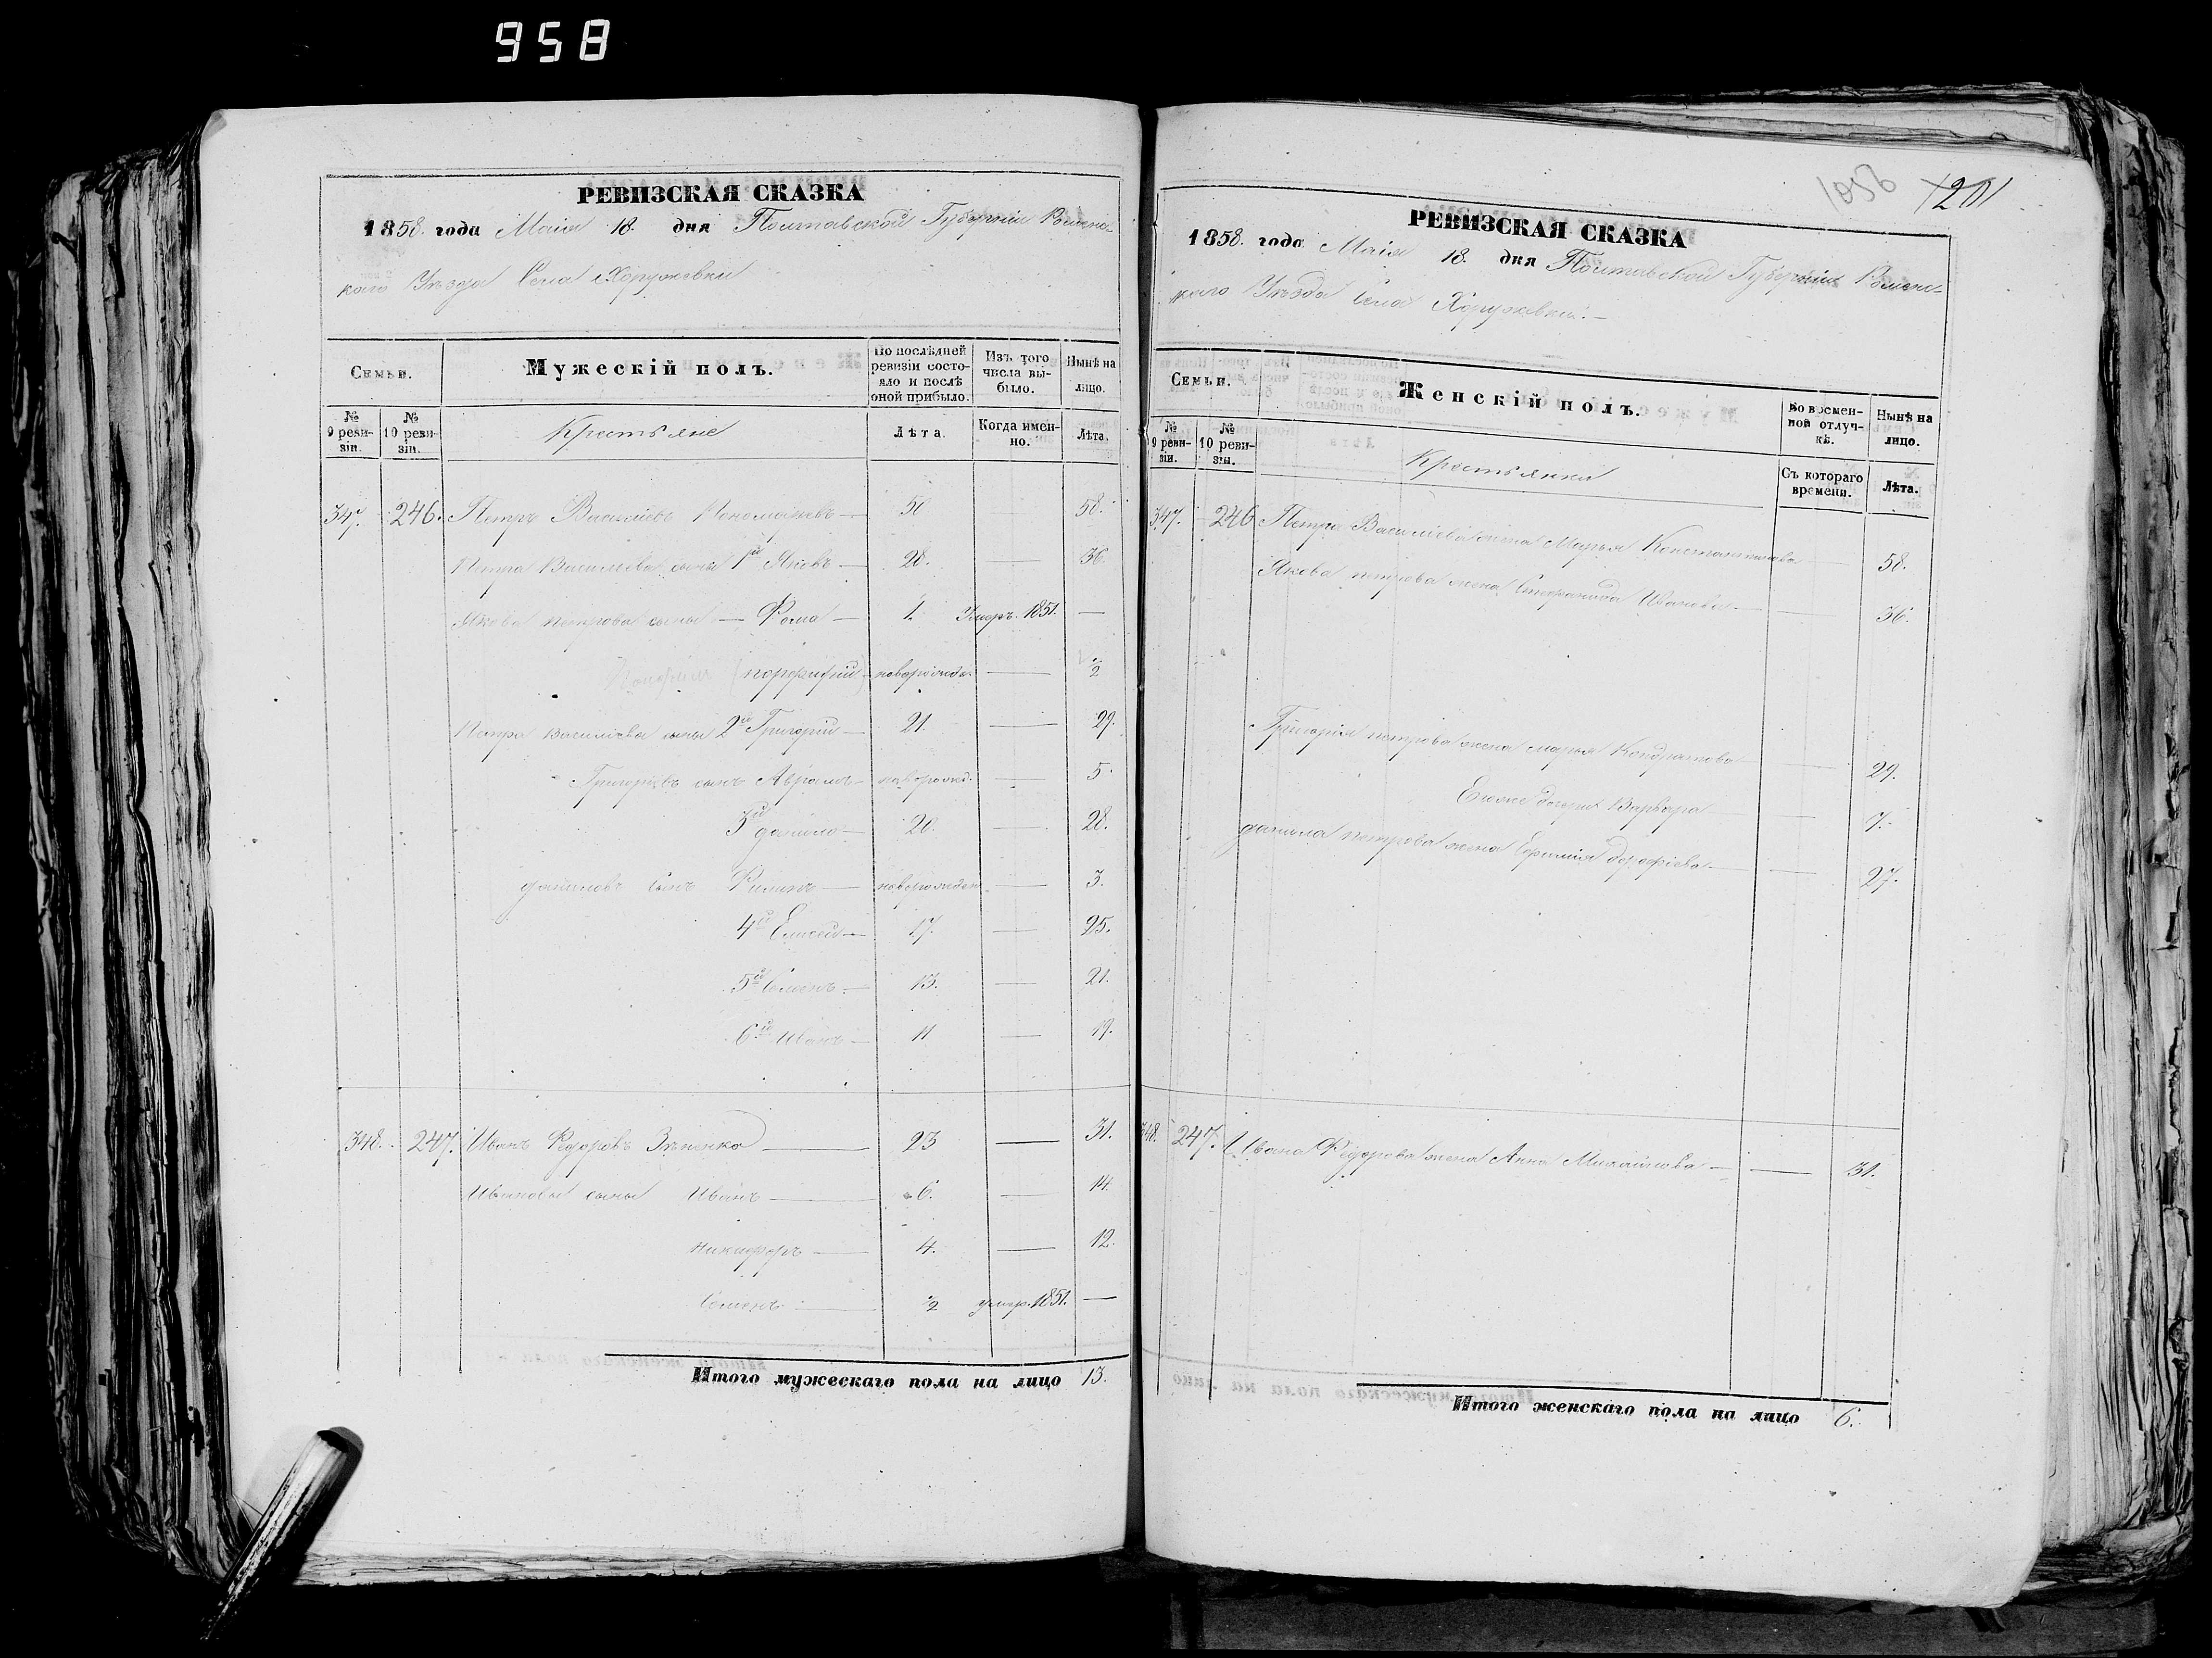 958
РЕВИЗСКАЯ СКАЗКА
1858. года Маія 18. дня Полтавской Губерніи Роменс-
каго Уѣзда Села Хоружевки
Семьи.
Мужескій полъ.
По послѣдней ревизіи состояло и послѣ оной прибыло.
Изъ того числа выбыло.
Нынѣ на лицо.
№ 9 ревизіи.
№ 10 ревизіи.
Крестьяне
Лѣта.
Когда именно.
Лѣта.
347. 246. Петръ Васильевъ — 50 — 58.
Петра Васильева сыны 1й Яковъ — 28. — 36.
Якова Петрова сыны — Фома — 1. Умеръ. 1851. —
новорожд. — ½
Петра Васильева сыны 2й Григорій — 21. — 29.
Григорьевъ сынъ Аврамъ — новорожд. — 5.
3й данило — 20. — 28.
даниловъ сынъ Филипъ — новорожден. — 3.
4й Елисей — 17. — 25.
5й Семенъ — 13. — 21.
6й Иванъ — 11 — 19.
348. 247. Иванъ Федоровъ — 23 — 31.
Ивановы сыны Иванъ — 6. — 14.
Никифоръ — 4. — 12.
Семенъ — ½ умер. 1851. —
Итого мужескаго пола на лицо 13.
1056 1201
РЕВИЗСКАЯ СКАЗКА
1858. года Маія 18. дня Полтавской Губерніи Роменс-
каго Уѣзда Села Хоружевки. —
Семьи.
Женскій полъ.
Во временной отлучкѣ.
Нынѣ на лицо.
№ 9 ревизіи.
№ 10 ревизіи.
Крестьянки
Съ котораго времени.
Лѣта.
347. 246 Петра Васильева жена Марья Константинова — 58.
Якова петрова жена Стефанида Иванова — — 36.
Григорія петрова жена марья Кондратова — 29.
Егоже дочери Варвара — 7.
данила петрова жена Ефимія дорофіева — — 27.
348. 247. Ивана Федорова жена Анна Михайлова — — 31.
Итого женскаго пола на лицо 6.